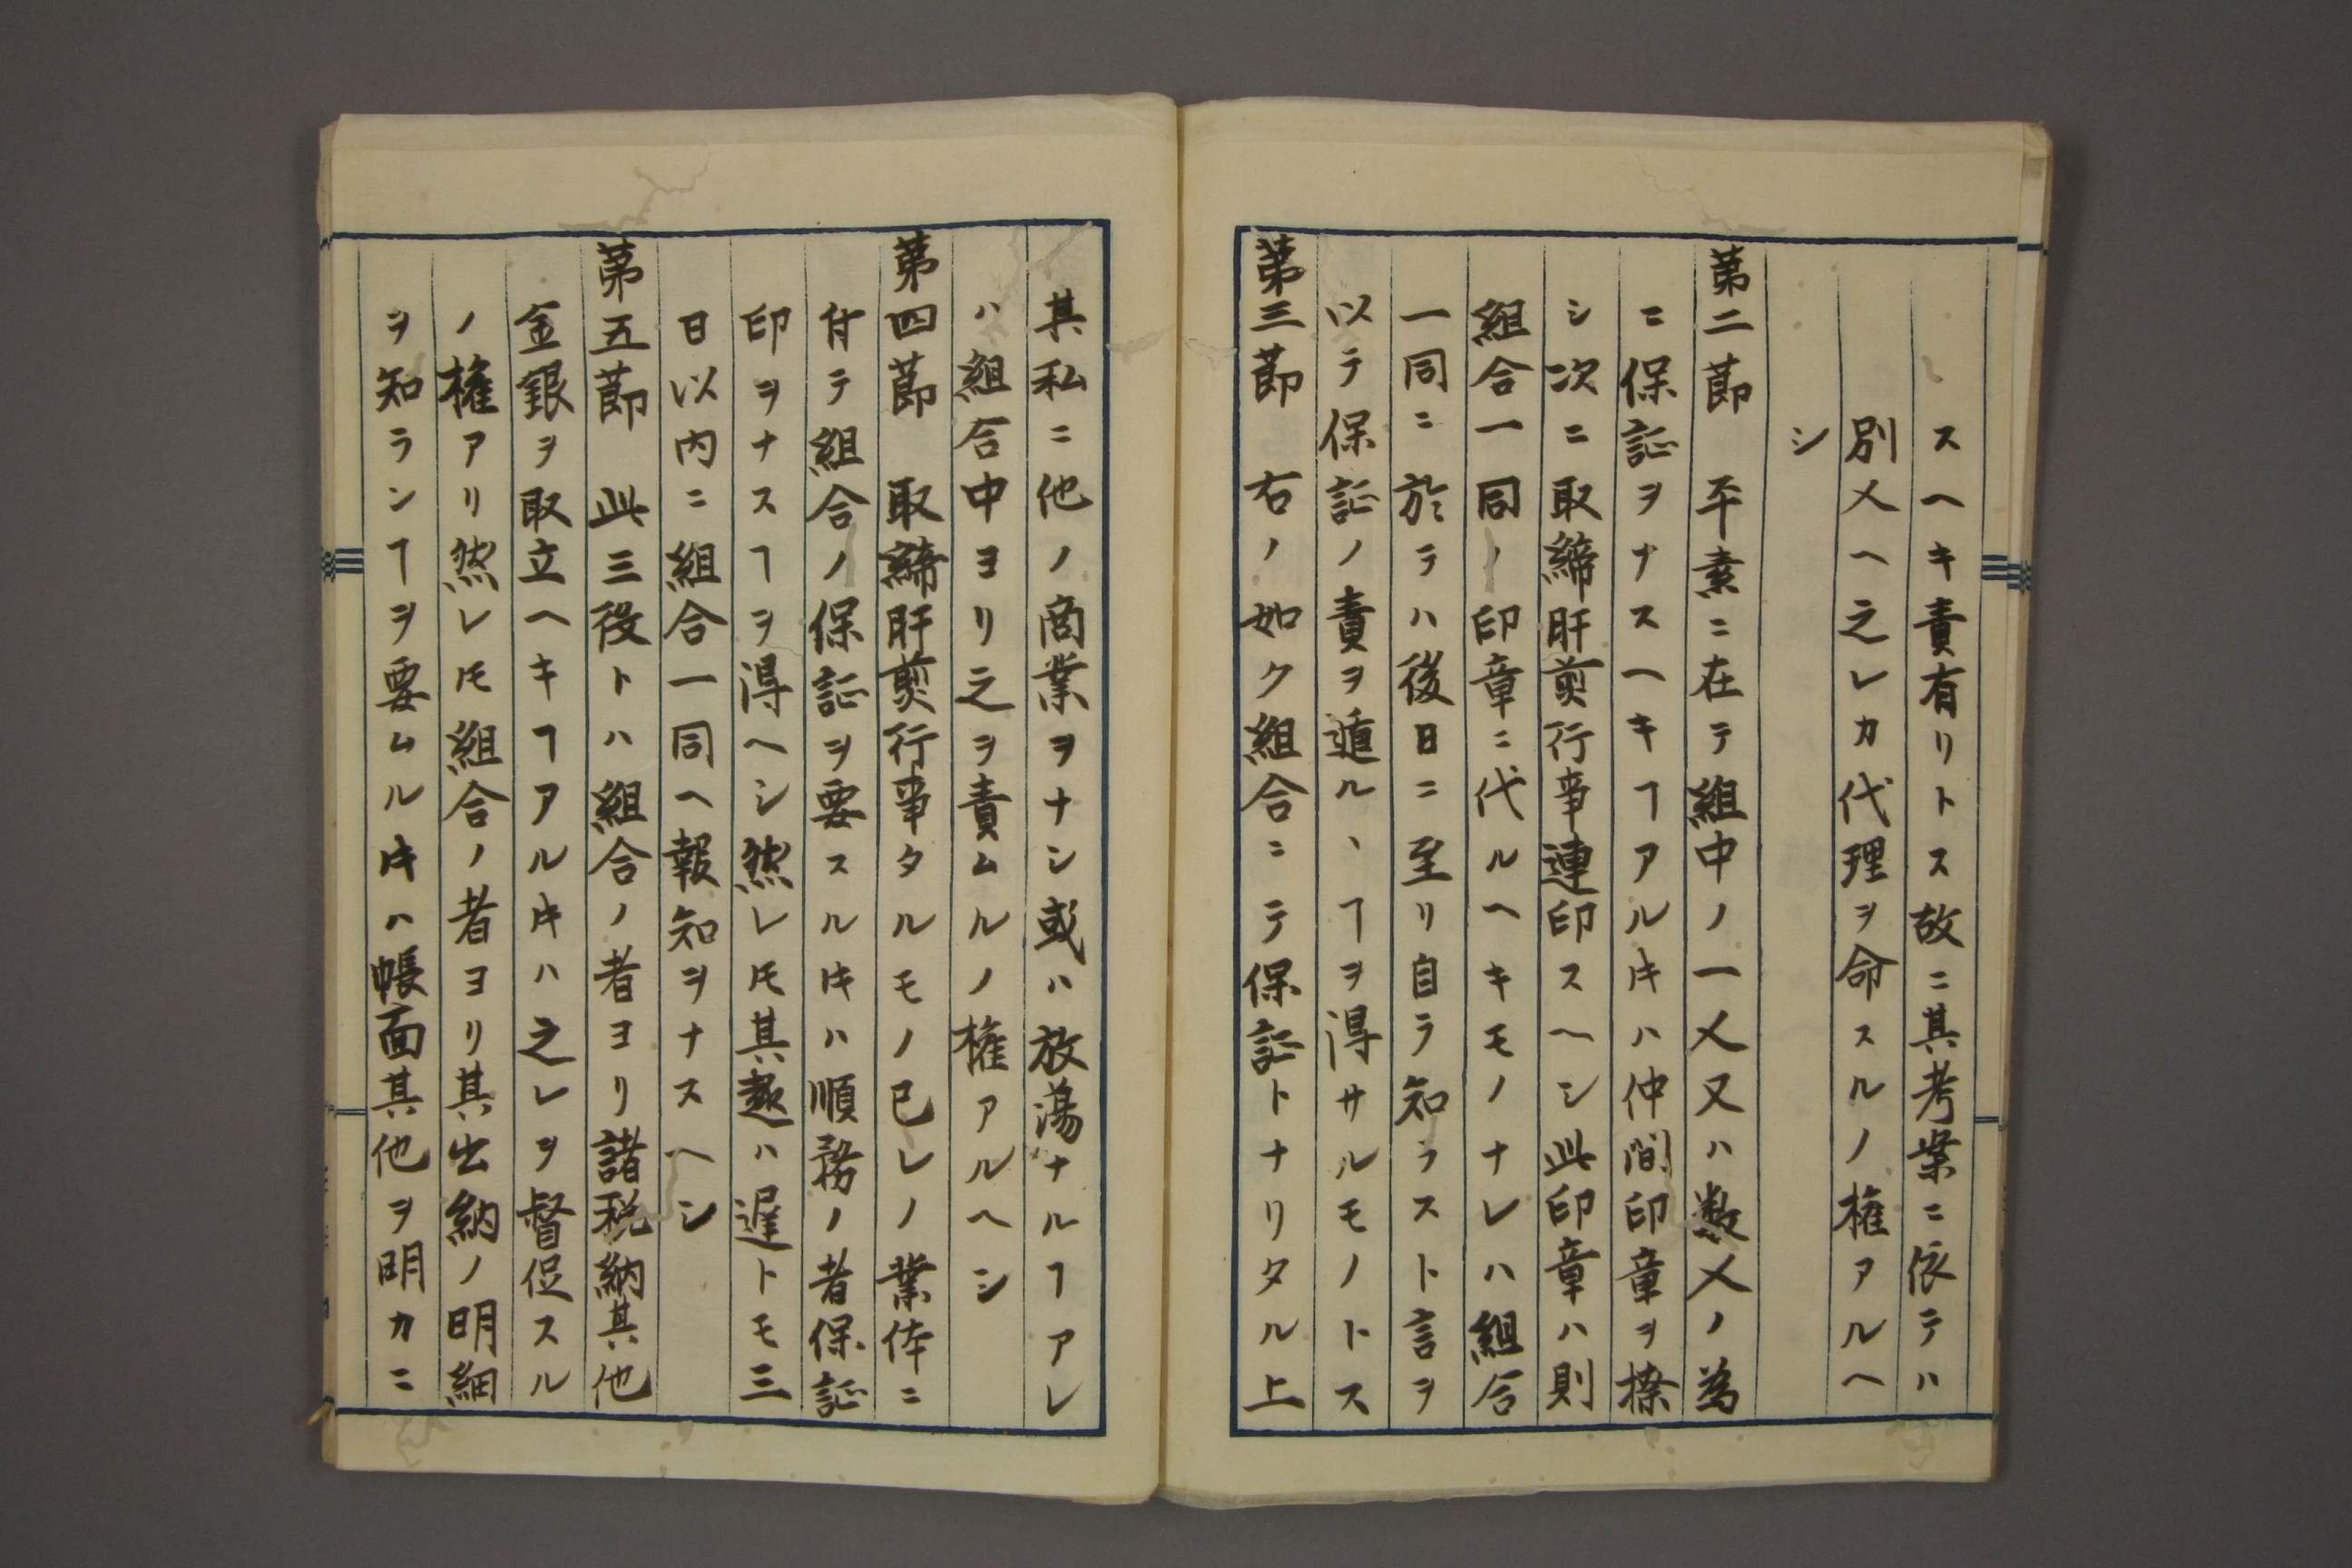 スヘキ責有リトス故ニ其考案ニ依テハ
別人ヘ之レカ代理ヲ命スルノ権アルヘ
シ
第二節 平素ニ在テ組中ノ一人又ハ数人ノ為
ニ保証ヲナスヘキヿアルㇳキハ仲間印章ヲ捺
シ次ニ取締肝煎行事連印スヘシ此印章ハ則
組合一同ノ印章ニ代ルヘキモノナレハ組合
一同ニ於テハ後日ニ至リ自ラ知ラスト言ヲ
以テ保証ノ責ヲ遁ルヽヿヲ得サルモノトス
第三節 右ノ如ク組合ニテ保証トナリタル上
其私ニ他ノ商業ヲナシ或ハ放蕩ナルヿアレ
ハ組合中ヨリ之ヲ責ムルノ権アルヘシ
第四節 取締肝煎行事タルモノ已レノ業体ニ
付テ組合ノ保証ヲ要スルㇳキハ順務ノ者保証
印ヲナスヿヲ得ヘシ然レ𪜈其趣ハ遅トモ三
日以内ニ組合一同ヘ報知ヲナスヘシ
第五節 此三役トハ組合ノ者ヨリ諸税納其他
金銀ヲ取立ヘキヿアルㇳキハ之レヲ督促スル
ノ権アリ然レ𪜈組合ノ者ヨリ其出納ノ明細
ヲ知ランヿヲ要ムルㇳキハ帳面其他ヲ明カニ